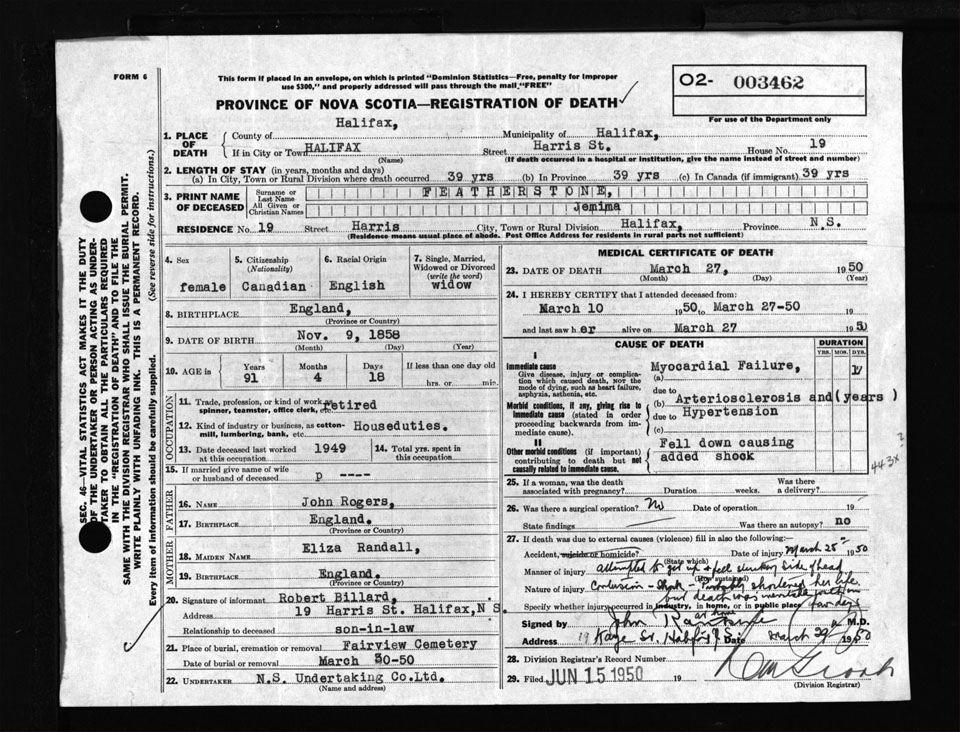 FORM 6
This form if placed in an envelope, on which is printed "Dominion Statistics—Free, penalty for improper
use $300," and properly addressed will pass through the mail "FREE"
O2- 003462
For use of the Department only
PROVINCE OF NOVA SCOTIA—REGISTRATION OF DEATH
SEC. 46—VITAL STATISTICS ACT MAKES IT THE DUTY
OF THE UNDERTAKER OR PERSON ACTING AS UNDER-
TAKER TO OBTAIN ALL THE PARTICULARS REQUIRED
IN THE "REGISTRATION OF DEATH" AND TO FILE THE
SAME WITH THE DIVISION REGISTRAR WHO SHALL ISSUE THE BURIAL PERMIT.
WRITE PLAINLY WITH UNFADING INK. THIS IS A PERMANENT RECORD.
Every item of information should be carefully supplied. (See reverse side for instructions.)
1. PLACE OF DEATH
County of Halifax, Municipality of Halifax,
If in City or Town HALIFAX Street Harris St. House No. 19
(Name) (If death occurred in a hospital or institution, give the name instead of street and number)
2. LENGTH OF STAY (in years, months and days)
(a) In City, Town or Rural Division where death occurred 39 yrs (b) In Province 39 yrs (c) In Canada (if immigrant) 39 yrs
3. PRINT NAME OF DECEASED
Surname or Last Name FEATHERSTONE,
All Given or Christian Names Jemima
RESIDENCE No. 19 Street Harris City, Town or Rural Division Halifax, Province N.S.
(Residence means usual place of abode. Post Office Address for residents in rural parts not sufficient)
4. Sex female
5. Citizenship (Nationality) Canadian
6. Racial Origin English
7. Single, Married, Widowed or Divorced (write the word) widow
8. BIRTHPLACE England,
(Province or Country)
9. DATE OF BIRTH Nov. 9, 1858
(Month) (Day) (Year)
10. AGE in Years 91 Months 4 Days 18 If less than one day old hrs. or min.
OCCUPATION
11. Trade, profession, or kind of work as spinner, teamster, office clerk, etc. retired
12. Kind of industry or business, as cotton-mill, lumbering, bank, etc. Houseduties.
13. Date deceased last worked at this occupation 1949
14. Total yrs. spent in this occupation
15. If married give name of wife or husband of deceased p ----
FATHER
16. NAME John Rogers,
17. BIRTHPLACE England.
(Province or Country)
MOTHER
18. MAIDEN NAME Eliza Randall,
19. BIRTHPLACE England.
(Province or Country)
20. Signature of informant Robert Billard,
Address 19 Harris St. Halifax,N S.
Relationship to deceased son-in-law
21. Place of burial, cremation or removal Fairview Cemetery
Date of burial or removal March 30-50
22. UNDERTAKER N.S. Undertaking Co.Ltd.
(Name and address)
MEDICAL CERTIFICATE OF DEATH
23. DATE OF DEATH March 27, 1950
(Month) (Day) (Year)
24. I HEREBY CERTIFY that I attended deceased from:
March 10 1950, to March 27-50 19
and last saw her alive on March 27 1950
CAUSE OF DEATH
DURATION
YRS. MOS. DYS.
I
Immediate cause
Give disease, injury or complication which caused death, NOT the mode of dying, such as heart failure, asphyxia, asthenia, etc.
(a) Myocardial Failure,
due to
Morbid conditions, if any, giving rise to immediate cause (stated in order proceeding backwards from immediate cause).
(b) Arteriosclerosis and (years )
due to Hypertension
(c)
II
Other morbid conditions (if important) contributing to death but not causally related to immediate cause.
Fell down causing
added shock
443x
25. If a woman, was the death associated with pregnancy? Duration weeks. Was there a delivery?
26. Was there a surgical operation? No Date of operation 19
State findings Was there an autopsy? no
27. If death was due to external causes (violence) fill in also the following:
Accident, suicide or homicide? (State which) Date of injury March 25 1950
Manner of injury attempted to get up & fell striking side of head
(How sustained)
Nature of injury Contusion - Shock - Probably shortened her life
but death was inevitable within
Specify whether injury occurred in industry, in home, or in public place few days
at home
Signed by John M.D.
Address 19 Kaye St. Halifax N.S. Date March 29 1950
28. Division Registrar's Record Number
29. Filed JUN 15 1950 19
(Division Registrar)